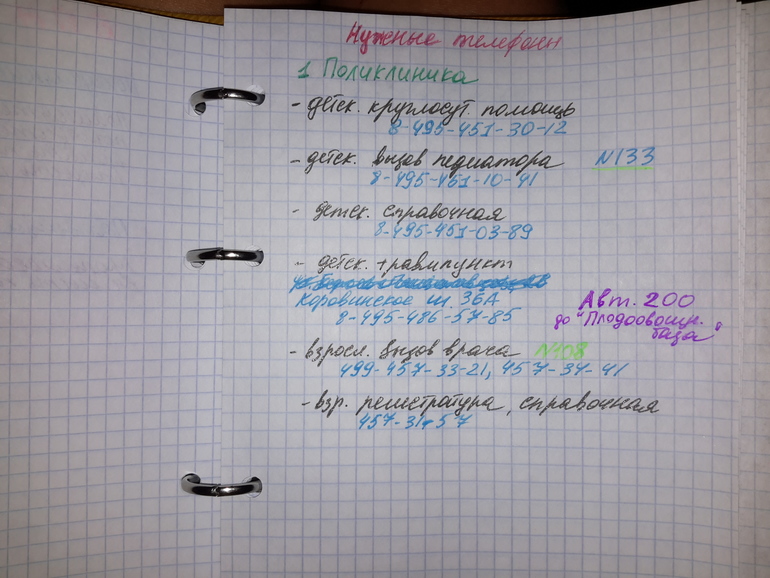 Нужные телефоны
1 Поликлиника
- детск. круглосут. помощь
8-495-451-30-12
- детск. вызов педиатора №133
8-495-451-10-41
- детск. справочная
8-495-451-03-89
- детск. травмпункт
Коровинское ш. 36А
8-495-486-57-85
Авт. 200
до "Плодоовощн.
база"
- взросл. вызов врача №108
499-457-33-21, 457-34-41
- взр. регистратура, справочная
457-31-57